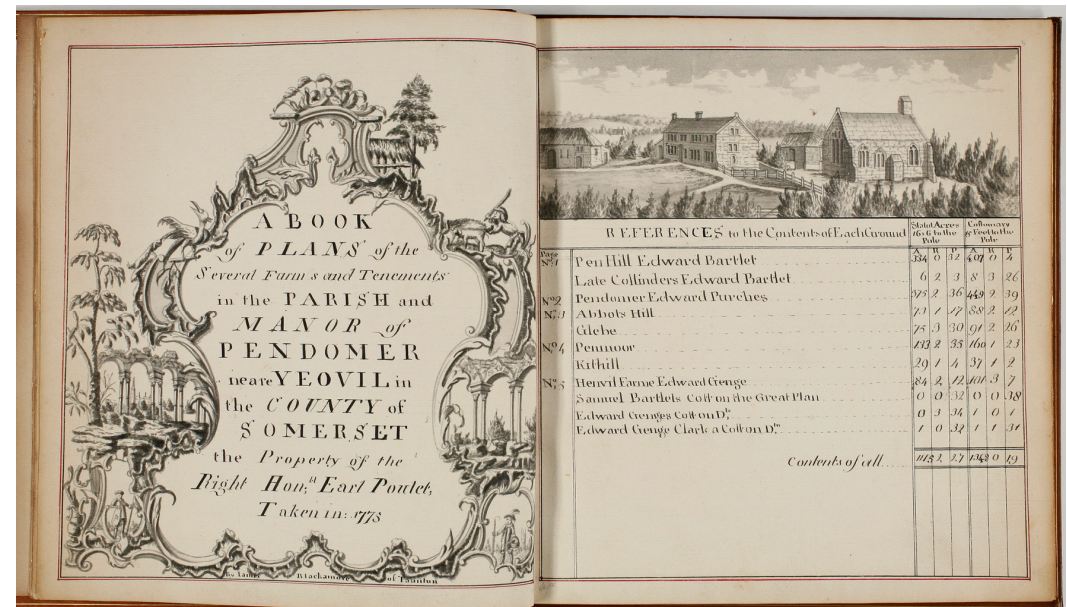 A BOOK
of PLANS of the
Several Farms and Tenements
in the PARISH and
MANOR of
PENDOMER
neare YEOVIL in
the COUNTY of
SOMERSET
the Property of the
Right Hon.ll Earl Poulet,
Taken in: 1775
By James Blackamore of Taunton
REFERENCES to the Contents of Each Ground
Statut Acres 16 1/2 to the Pole
Customary 15 Feet to the Pole
A R P A R P
Page No. 1 Pen Hill Edward Bartlet 334 0 32 407 0 4
Late Collinders Edward Bartlet 6 2 3 8 3 26
No. 2 Pendomer Edward Purches 375 2 36 449 2 39
No. 3 Abbots Hill 73 1 17 88 2 12
Glebe 75 3 30 91 2 26
No. 4 Penmoor 133 2 35 160 1 23
Kithill 29 1 4 37 1 2
No. 5 Henvil Farme Edward Genge 84 2 12 101 3 7
Samuel Bartlets Cott on the Great Plan 0 0 32 0 0 38
Edward Genges Cott on Do. 0 3 34 1 0 1
Edward Genge Clark a Cott on Do. 1 0 32 1 1 31
Contents of all 1115 2 27 0 19